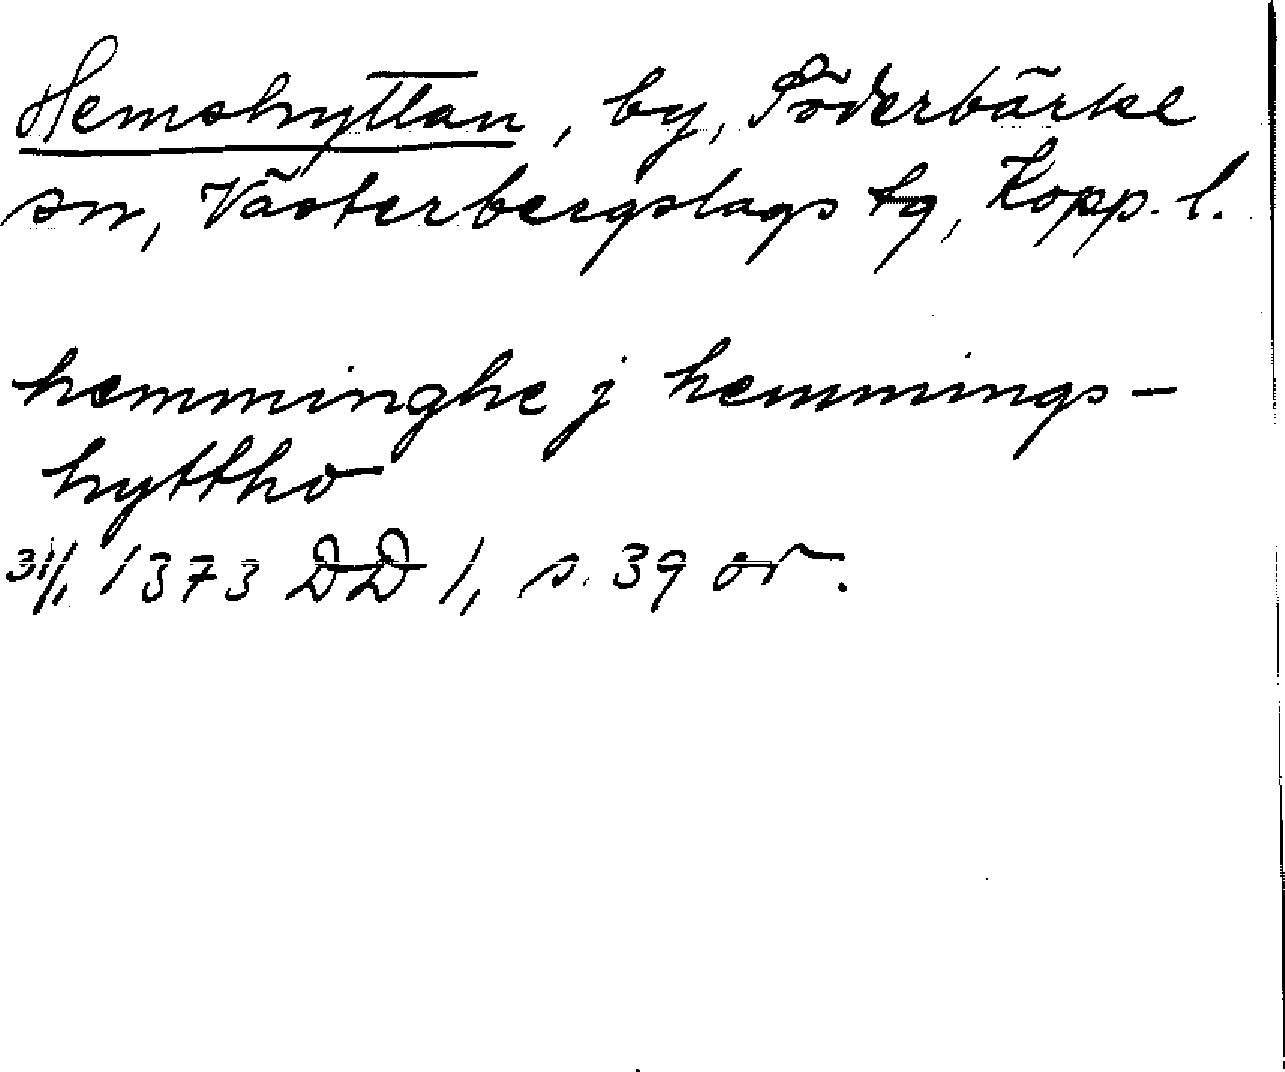 Hemshyttan, by, Söderbärke
sn, Västerbergslags tg, Kopp. l.
hemminghe j hemmings-
hyttho
31/1 1373 DD 1, s. 39 or.